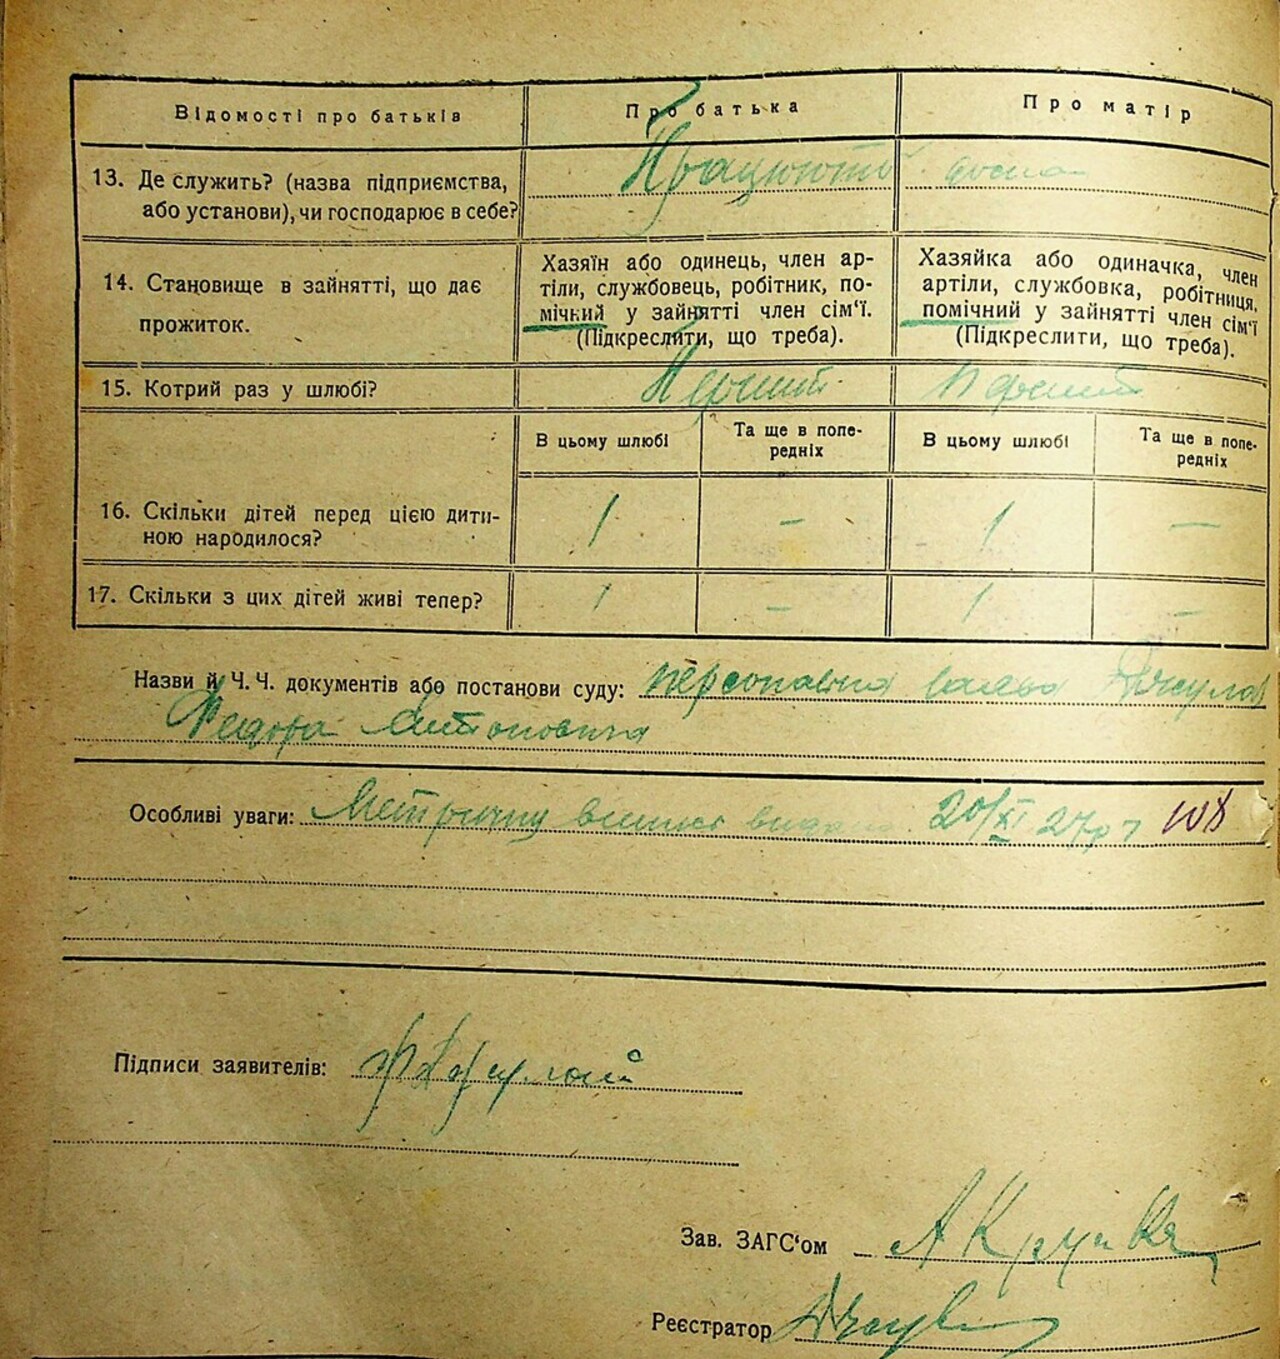 Відомості про батьків Про батька Про матір
13. Де служить? (назва підприємства, Працюють дома
або установи), чи господарює в себе?
14. Становище в зайнятті, що дає
прожиток.
Хазяїн або одинець, член ар-
тілі, службовець, робітник, по-
мічний у зайнятті член сім'ї.
(Підкреслити, що треба).
Хазяйка або одиначка, член
артілі, службовка, робітниця,
помічний у зайнятті член сім'ї
(Підкреслити, що треба).
15. Котрий раз у шлюбі? Перший Перший
В цьому шлюбі Та ще в попе- В цьому шлюбі Та ще в попе-
редніх редніх
16. Скільки дітей перед цією дити- 1 — 1 —
ною народилося?
17. Скільки з цих дітей живі тепер? 1 — 1 —
Назви й Ч.Ч. документів або постанови суду: персональна заява
Федора Антоновича
Особливі уваги: Метричну виписъ видано 20/XI 27р
Підписи заявителів:
Зав. ЗАГС'ом
Реєстратор